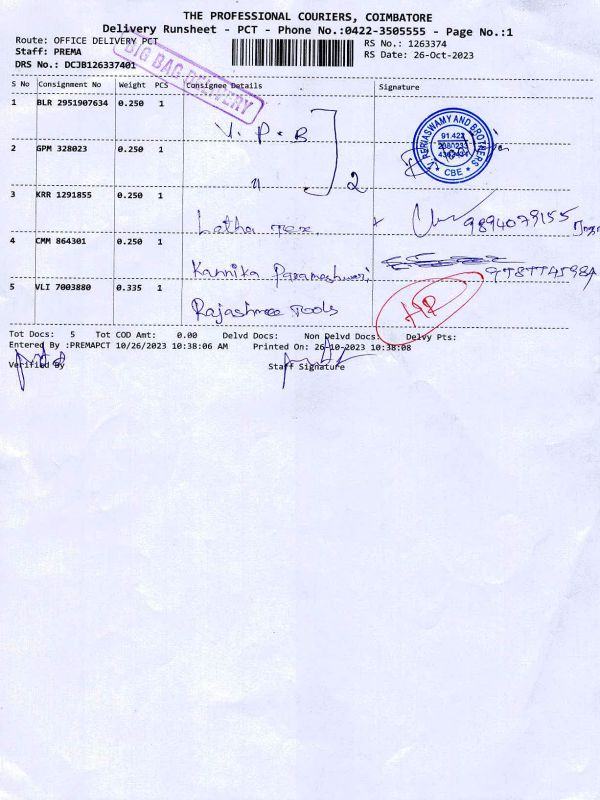 THE PROFESSIONAL COURIERS, COIMBATORE
Delivery Runsheet - PCT - Phone No.:0422-3505555 - Page No.:1
Route: OFFICE DELIVERY PCT
RS No.: 1263374
Staff: PREMA
RS Date: 26-Oct-2023
DRS No.: DCJB126337401
BIG BAG DELIVERY
S No Consignment No Weight PCS Consignee Details Signature
1 BLR 2951907634 0.250 1 V.P.B
2 GPM 328023 0.250 1 " 2
V. PERIASWAMY AND BROTHERS
★ CBE ★
3 KRR 1291855 0.250 1 Latha Tex
4 CMM 864301 0.250 1 Kannika Parameshwari
5 VLI 7003880 0.335 1 Rajashree Tools
Tot Docs: 5 Tot COD Amt: 0.00 Delvd Docs: Non Delvd Docs: Delvy Pts:
Entered By :PREMAPCT 10/26/2023 10:38:06 AM Printed On: 26-10-2023 10:38:08
Verified By Staff Signature